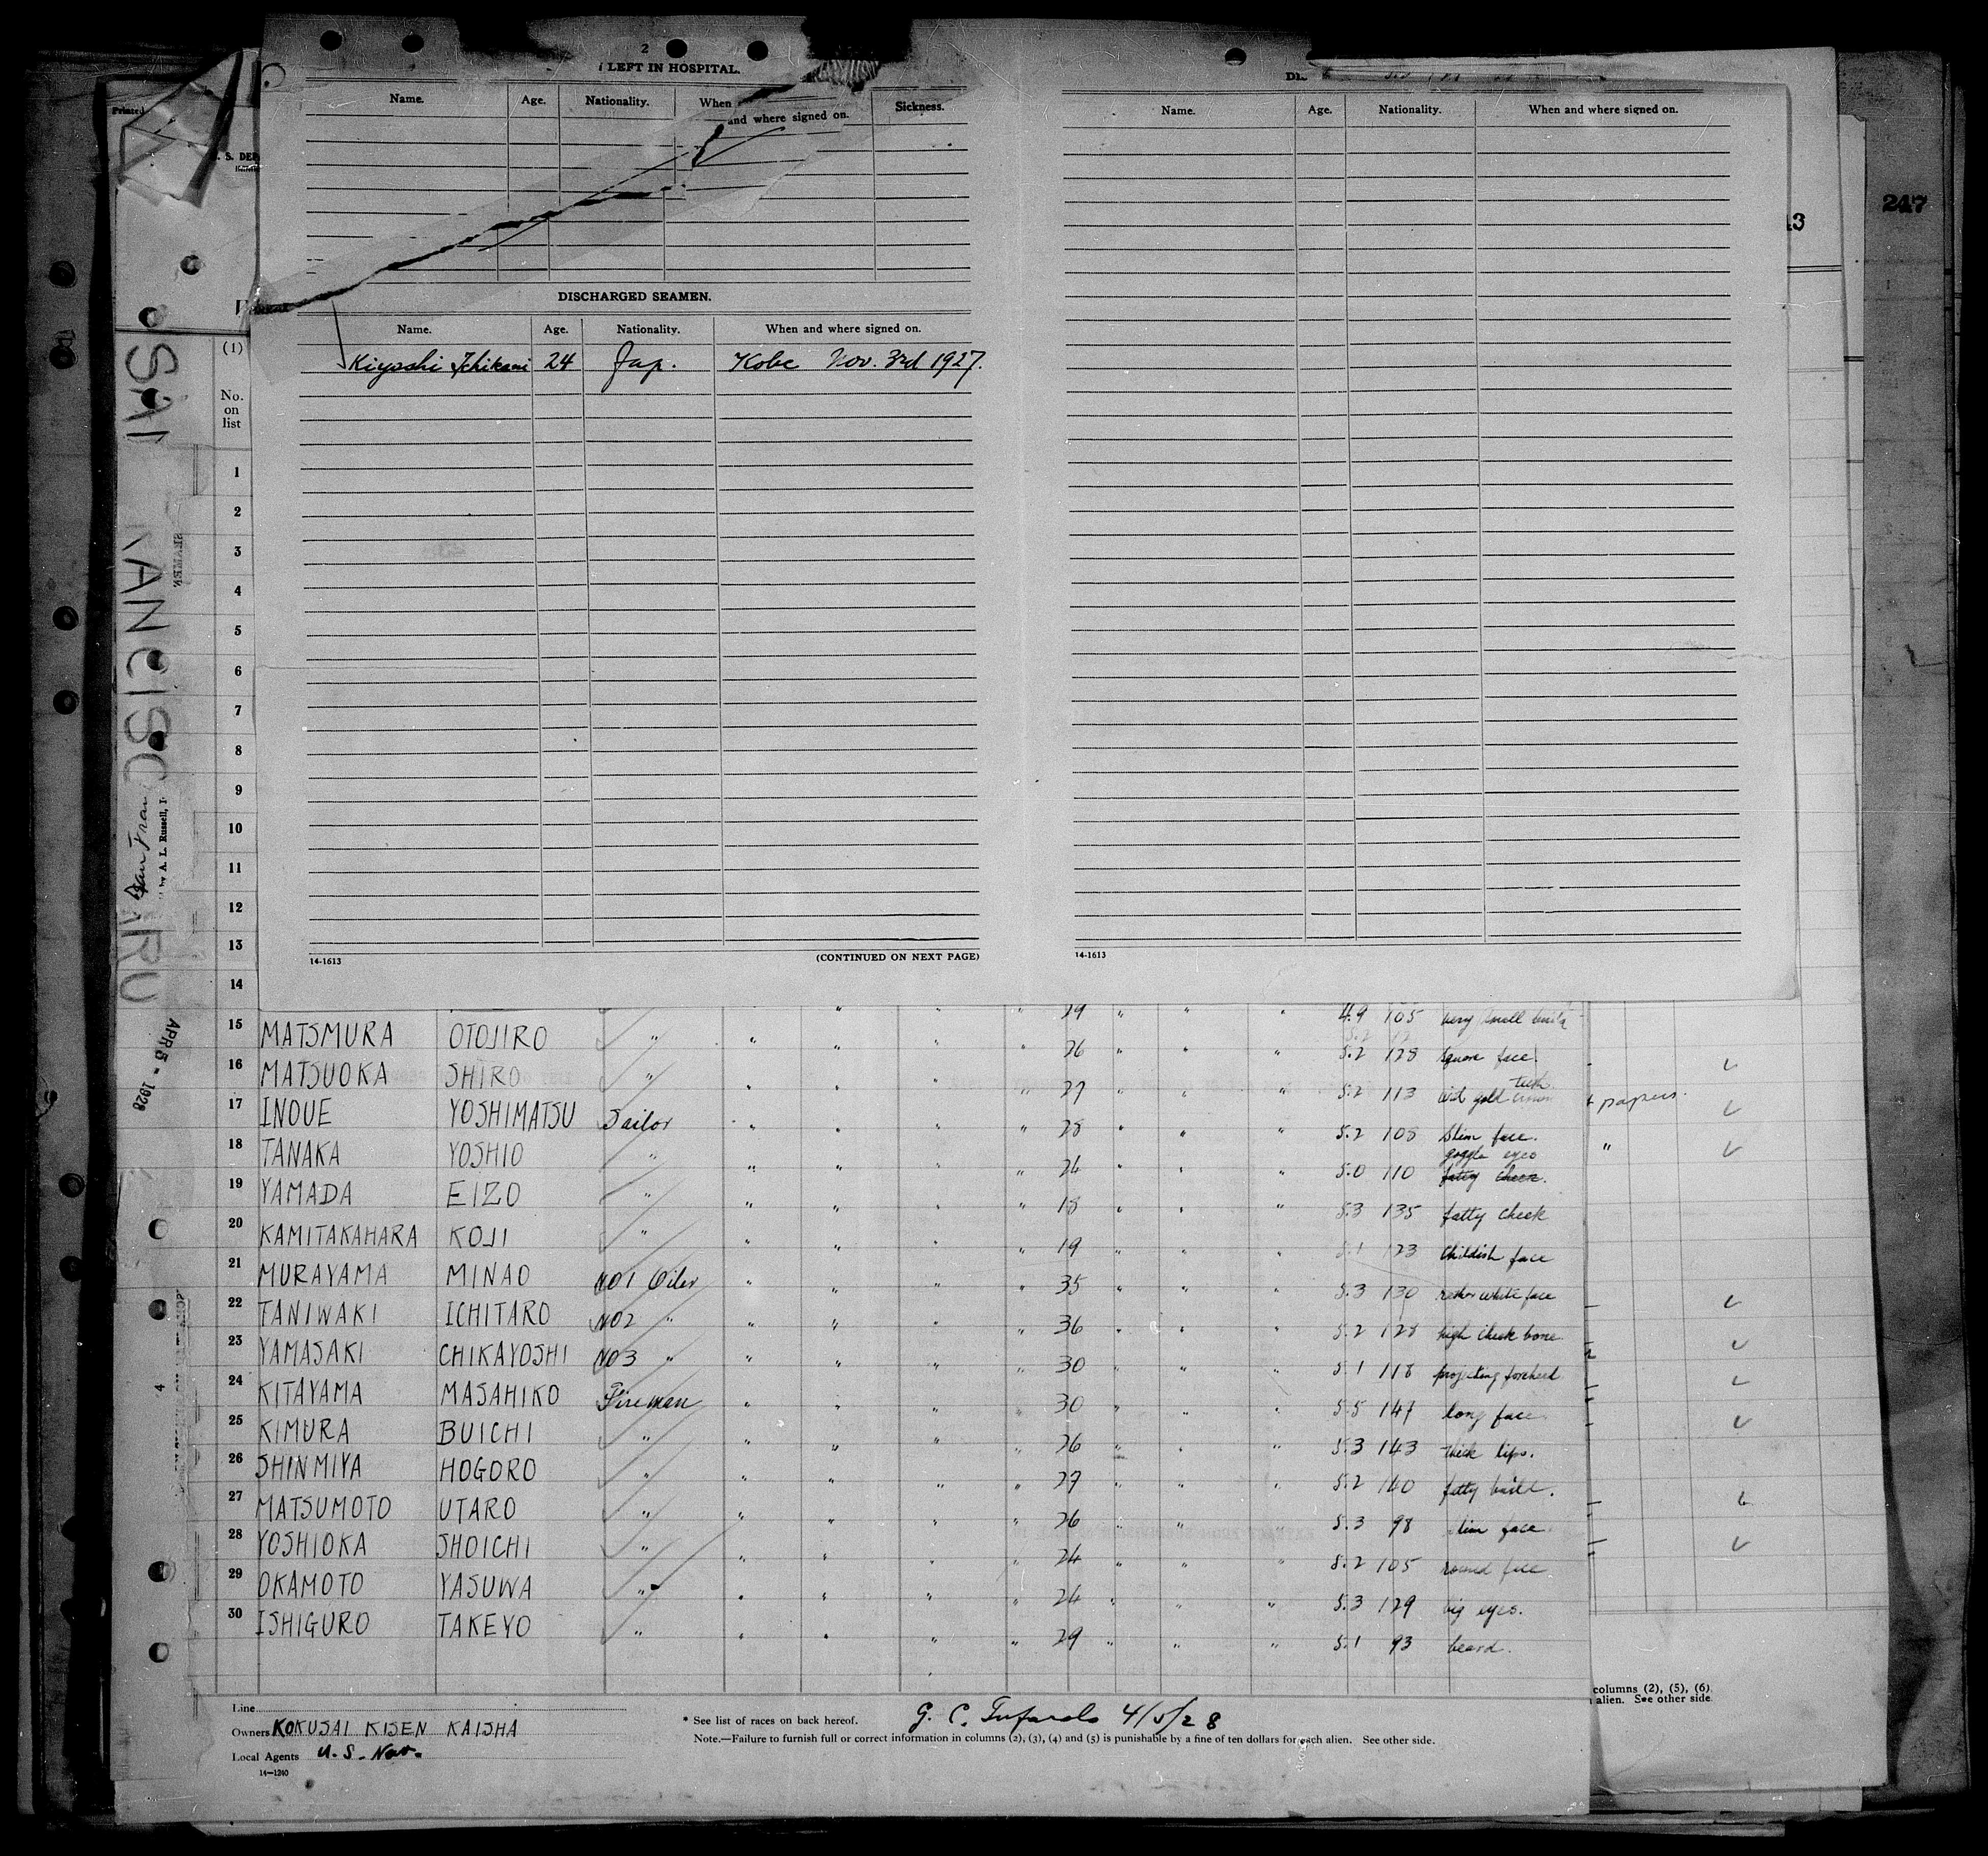 2
LEFT IN HOSPITAL.
Name. Age. Nationality. When and where signed on. Sickness.
DISCHARGED SEAMEN.
Name. Age. Nationality. When and where signed on.
Kiyoshi Ichikami 24 Jap. Kobe Nov. 3rd 1927.
14-1613 (CONTINUED ON NEXT PAGE)
Name. Age. Nationality. When and where signed on.
14-1613
247
13
Printed
S. DEP
(1)
No.
on
list
1
2
3
4
5
6
7
8
9
10
11
12
13
14
19 " " " 4.9 105 very small build
15 MATSMURA OTOJIRO " " " " " 26 " " " 5.2 128 square face.
16 MATSUOKA SHIRO " " " " " 27 " " " 5.2 113 gold teeth
17 INOUE YOSHIMATSU Sailor " " " " 28 " " " 5.2 108 Slim face.
18 TANAKA YOSHIO " " " " " 24 " " " 5.0 110 goggle eyes
19 YAMADA EIZO " " " " " 18 " " " 5.3 135 fatty cheek
20 KAMITAKAHARA KOJI " " " " " 19 " " " 5.1 123 Childish face
21 MURAYAMA MINAO NO1 Oiler " " " " 35 " " " 5.3 130 rather white face
22 TANIWAKI ICHITARO NO2 " " " " " 36 " " " 5.2 128 high cheek bone
23 YAMASAKI CHIKAYOSHI NO3 " " " " " 30 " " " 5.1 118 projecting forehead
24 KITAYAMA MASAHIKO Fireman " " " " 30 " " " 5.5 147 long face
25 KIMURA BUICHI " " " " " 26 " " " 5.3 143 thick lips.
26 SHINMIYA HOGORO " " " " " 27 " " " 5.2 140 fatty build.
27 MATSUMOTO UTARO " " " " " 26 " " " 5.3 98 slim face
28 YOSHIOKA SHOICHI " " " " " 24 " " " 5.2 105 round face
29 OKAMOTO YASUWA " " " " " 24 " " " 5.3 129 big eyes.
30 ISHIGURO TAKEYO " " " " " 29 " " " 5.1 93 beard.
papers.
"
Line
Owners KOKUSAI KISEN KAISHA
Local Agents U.S. Nav.
14—1240
* See list of races on back hereof.
G. C. 4/5/28
Note.—Failure to furnish full or correct information in columns (2), (3), (4) and (5) is punishable by a fine of ten dollars for each alien. See other side.
columns (2), (5), (6)
alien. See other side.
by A. L. Russell, I
APR 5 - 1928
SEAMEN
4